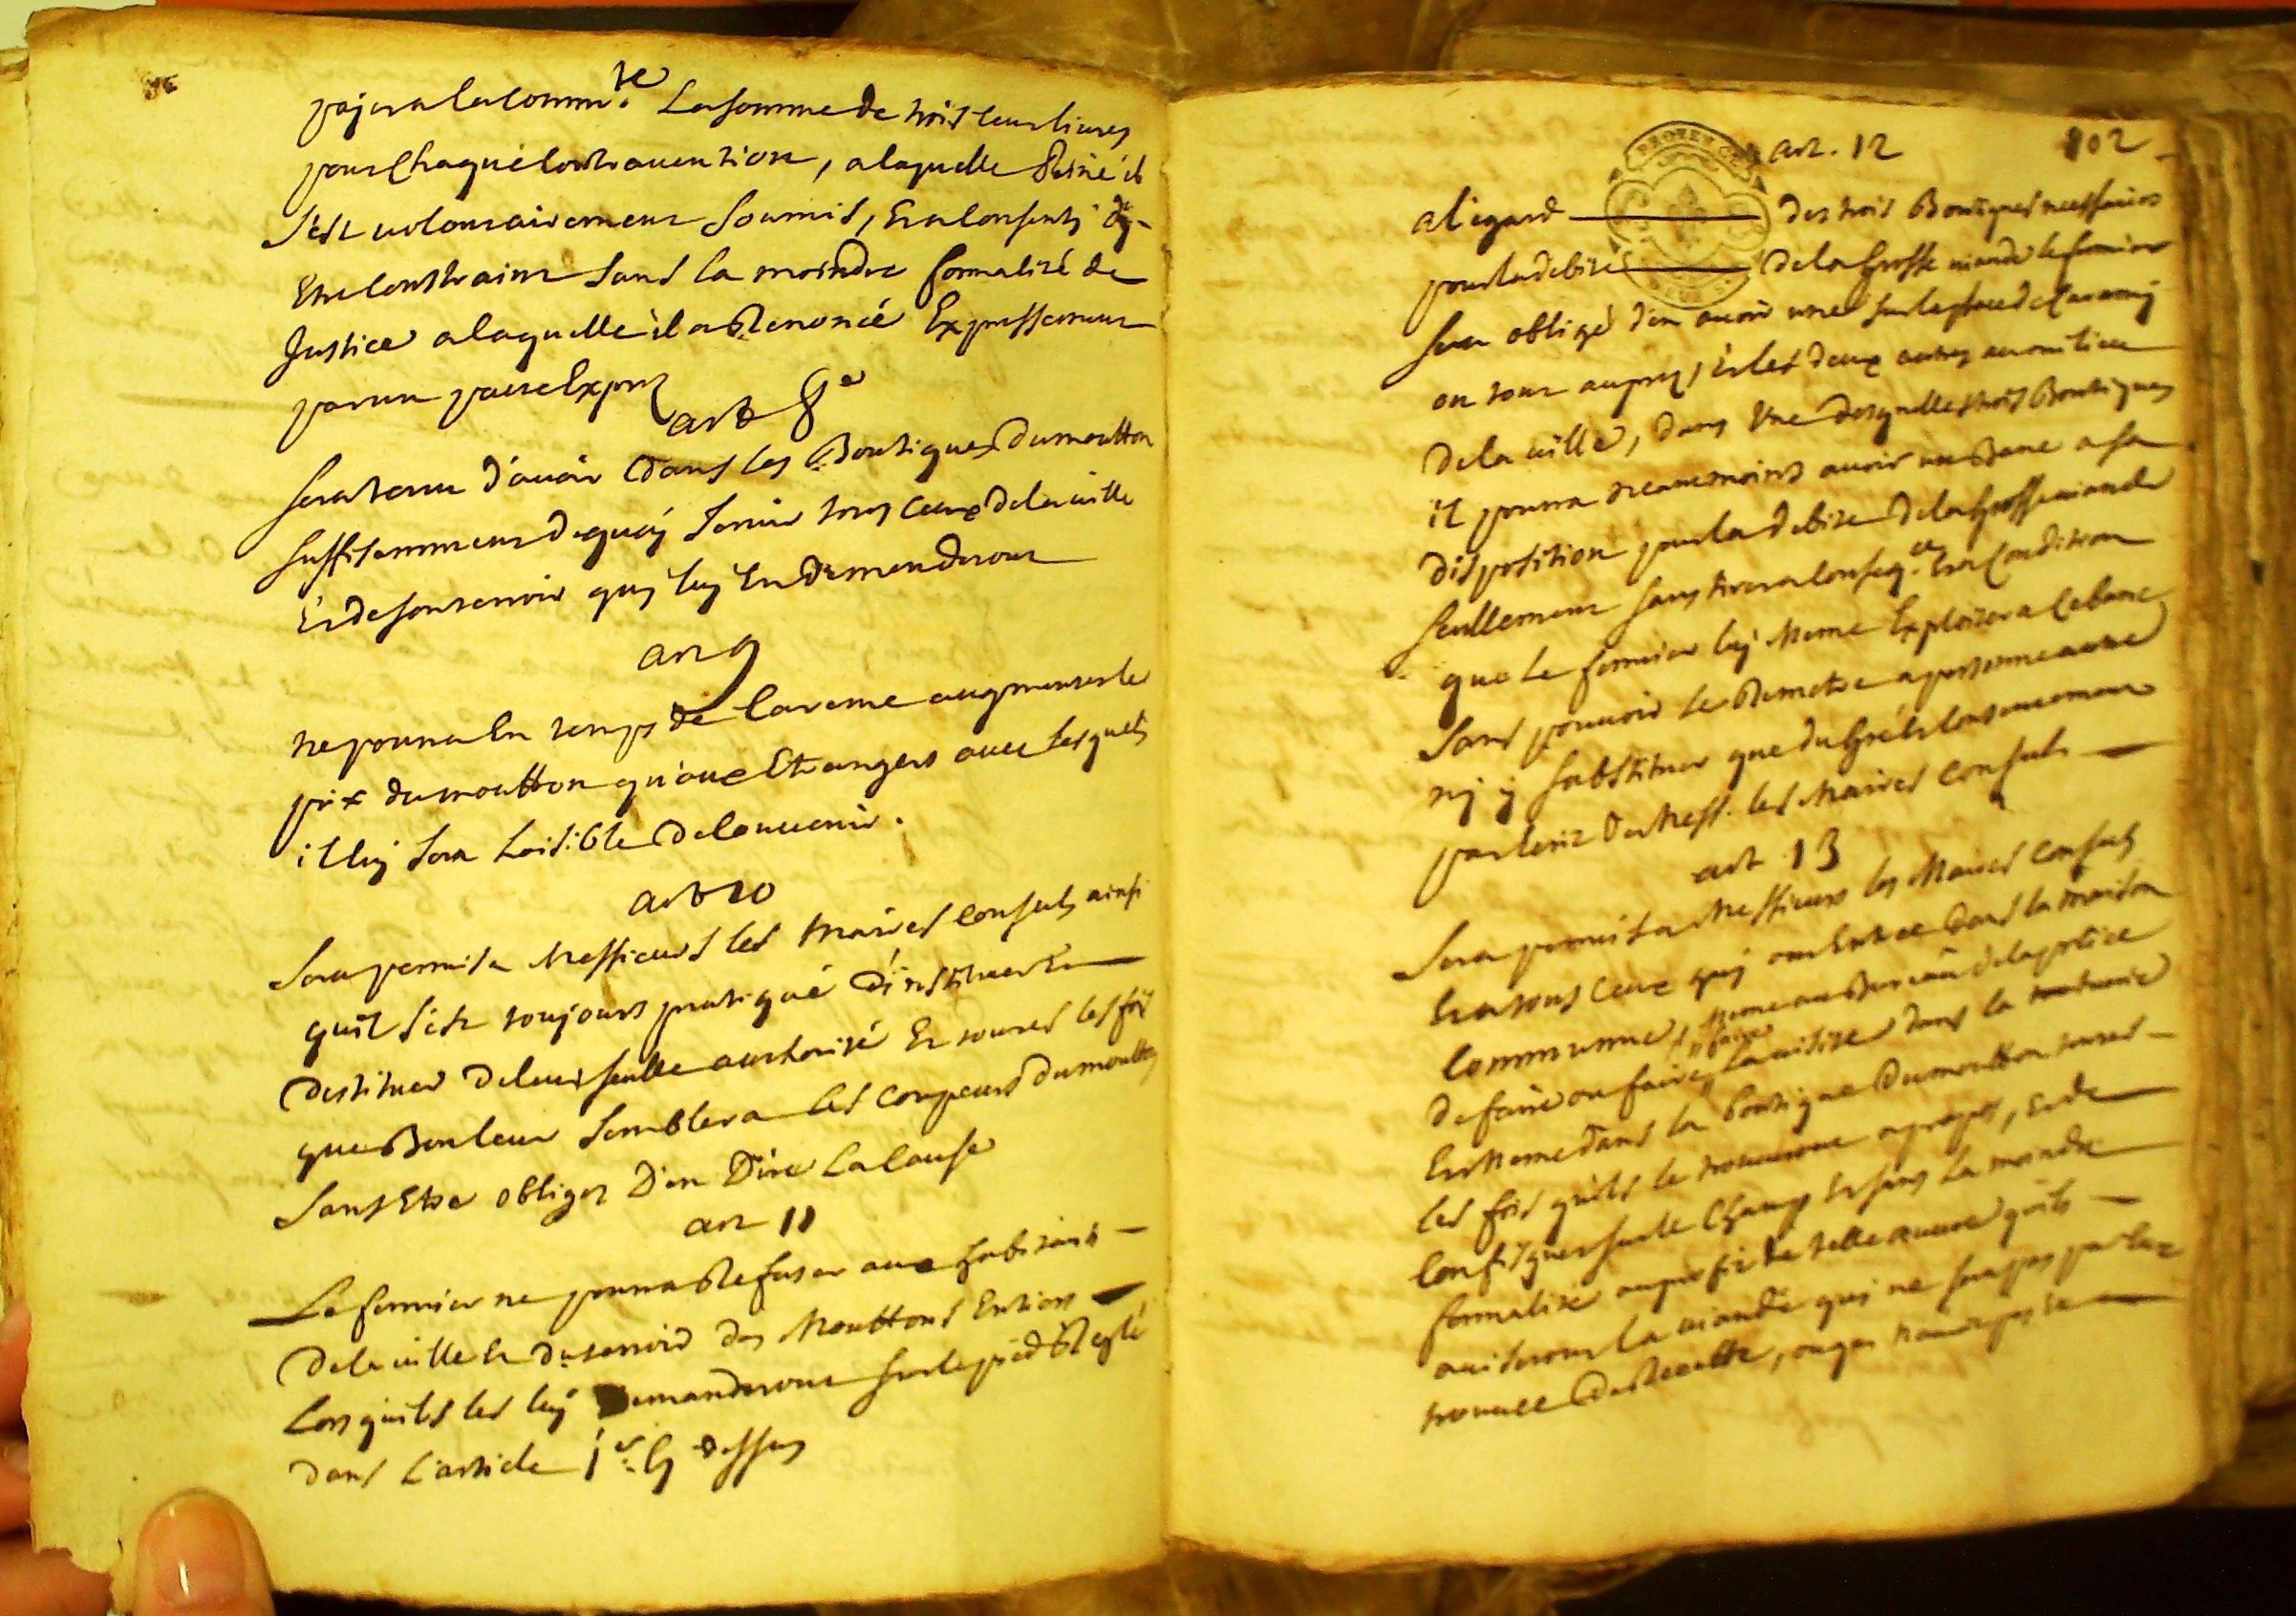 payera la comm.te la somme de trois cens livres
pour chaque contravention, a laquelle peine il
s'est volontairement soumis, et a consenty d'y
etre contraint sans la moindre formalité de
justice a laquelle il a renoncé expressement
par un pacte exprez
art 8e
sera tenu d'avoir dans les boutiques du moutton
suffisemment de quoy servir tous ceux de la ville
et de son terroir quy luy en demanderont
art 9
ne pourra en temps de careme augmenter le
prix du moutton qu'aux etrangers avec lesquels
il luy sera loisible de convenir.
art 10
sera permis a messieurs les maires consuls ainsi
quil s'est toujours pratiqué d'instituer et
destituer de leur seulle authorité et toutes les fois
que bon leur semblera les coupeurs du moutton
sans etre obligez d'en dire la cause
art 11
Le fermier ne pourra refuser aux habitants
de la ville et du terroir des mouttons entiers
lors quils les luy demanderont sur le pied reglé
dans l'article 1er cy dessus
802
art. 12
a l'egard des trois boutiques necessaires
pour la debite de la grosse viande le fermier
sera obligé d'en avoir une sur la place de Caramy
ou tout auprez, et les deux autres au milieu
de la ville, dans une desquelles trois boutiques
il pourra neanmoins avoir un banc a sa
disposition pour la debite de la grosse viande
seullement sans tirer a conseq.ce et a condition
que le fermier luy meme exploitera ce banc
sans pouvoir le remetre a personne autre
ny y substituer que du gré et consentement
par ecrit de mess. les maires consuls
art 13
sera permis a messieurs les maires consuls
et a tous ceux quy ont entree dans la maison
commune, meme au bureau de la police
de faire ou faire faire la visite dans la
et meme dans la boutique du moutton toutes
les fois quils le trouveront a propos, et de
confisquer sur le champ et sans la moindre
formalité au profit de telle œuvre quils
aviseront la viande quy ne sera pas
trouvee de recette, ou qui